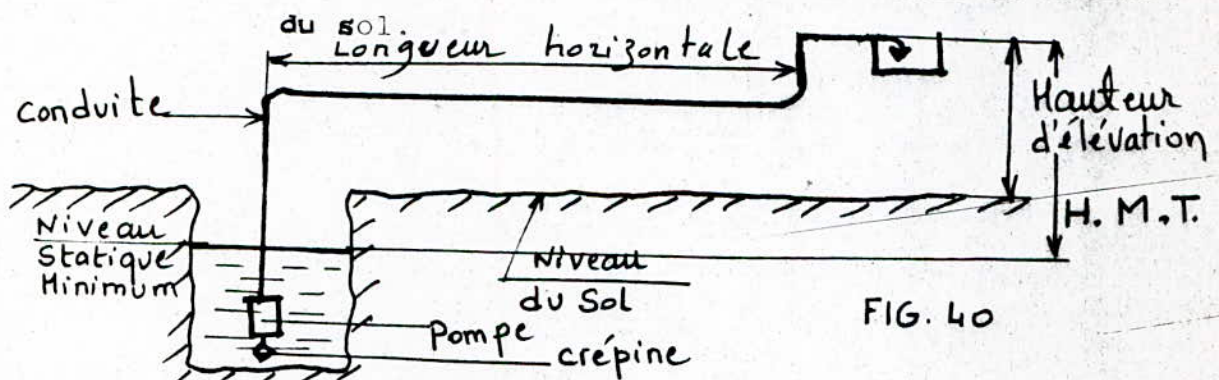 du sol.
Longueur horizontale
Conduite
Hauteur
d'élévation
H.M.T.
Niveau
Statique
Minimum
Niveau
du Sol
FIG. 40
Pompe
crépine